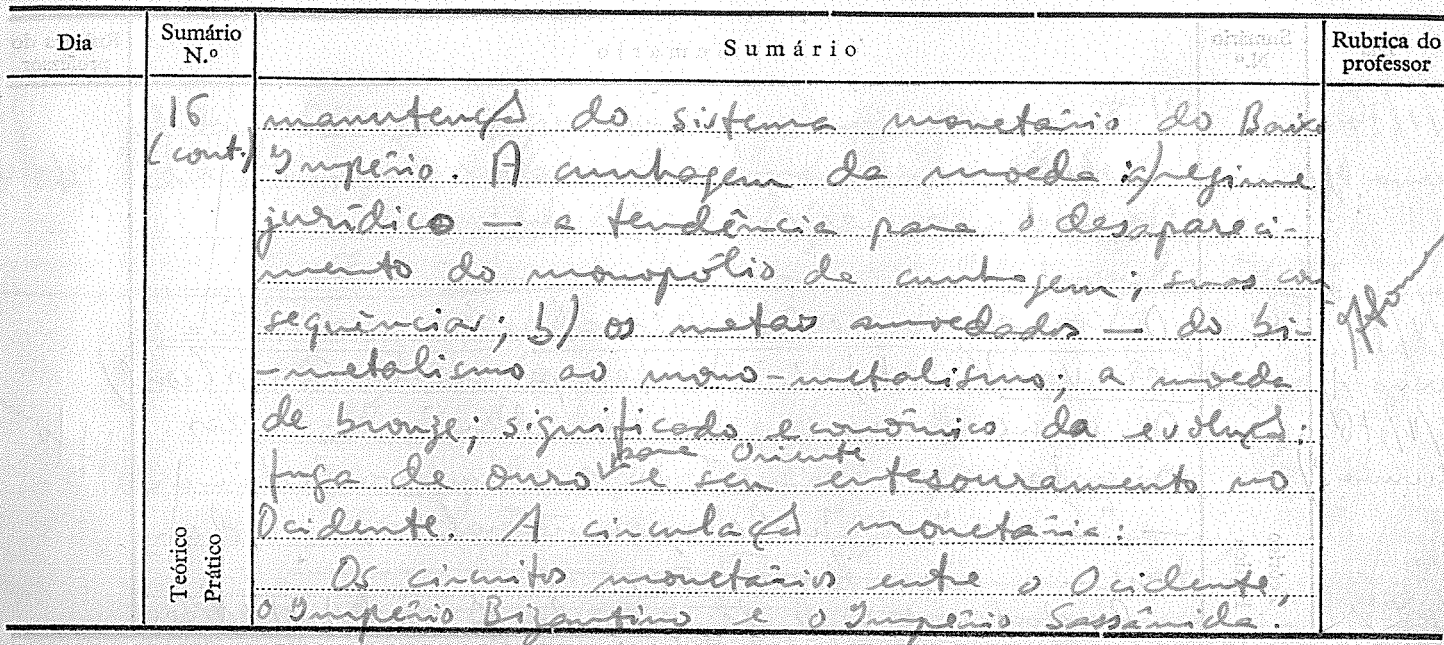 Dia
Sumário N.º
Sumário
Rubrica do professor
16 (cont.)
manutenção do sistema monetário do Baixo
Império. A cunhagem da moeda: a) regime
jurídico — a tendência para o desapareci-
mento do monopólio de cunhagem; suas con
sequências; b) os metais amoedados — do bi-
-metalismo ao mono-metalismo; a moeda
de bronze; significado económico da evolução:
fuga de ouro para Oriente e seu entesouramento no
Ocidente. A circulação monetária:
Os circuitos monetários entre o Ocidente,
o Império Bizantino e o Império Sassânida.
Teórico
Prático